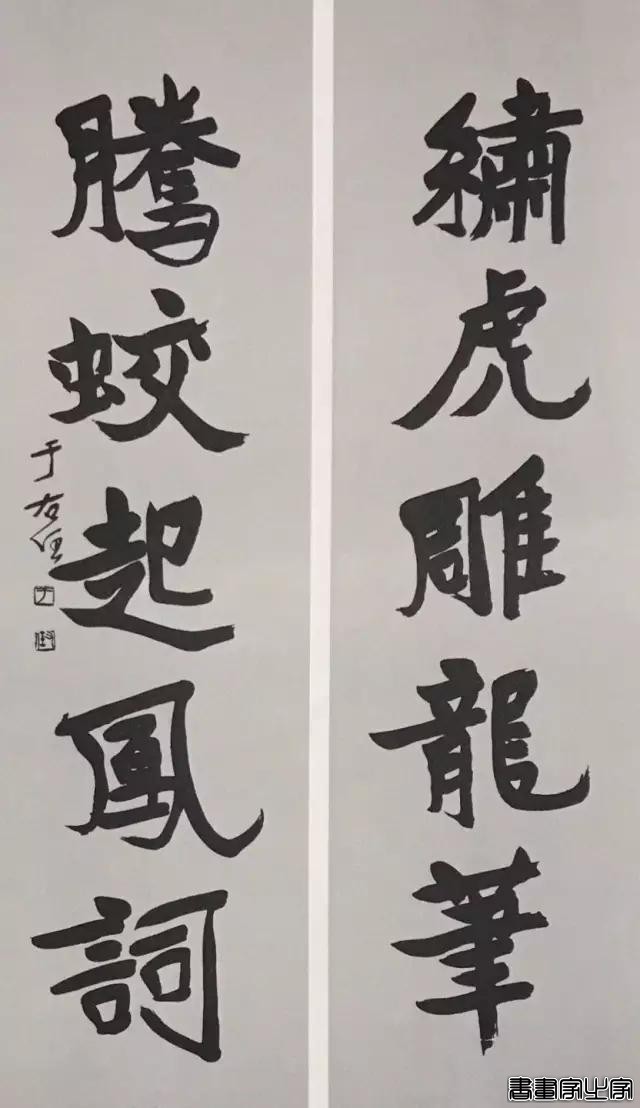 繡虎雕龍筆
騰蛟起鳳詞
于右任
書畫家之家